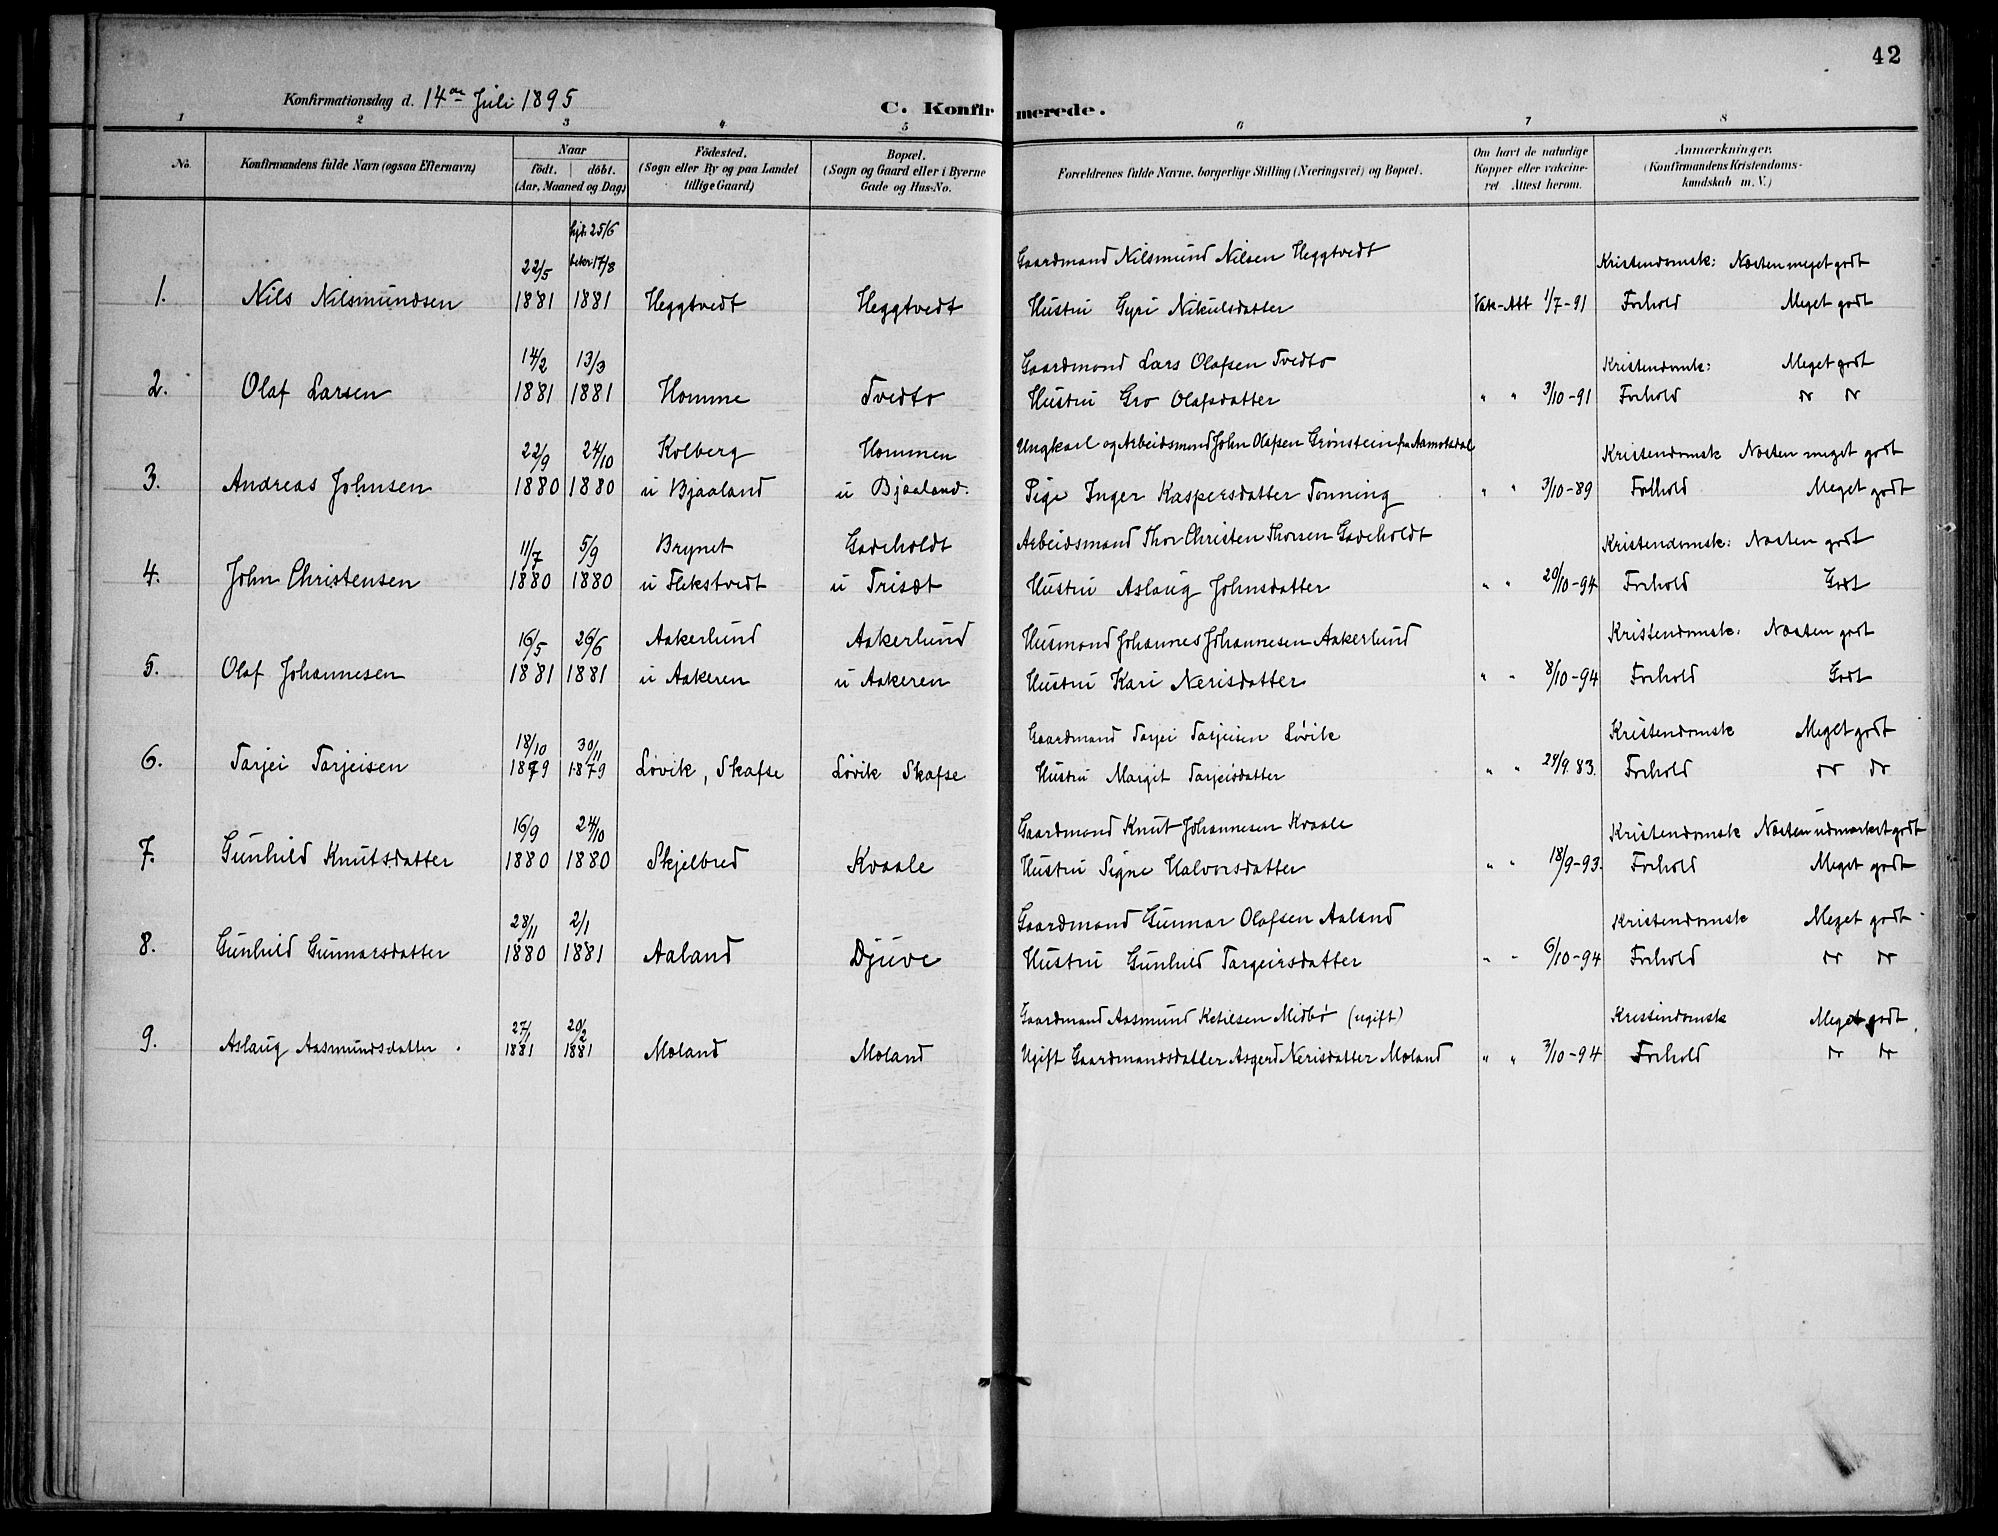 42
Konfirmationsdag d. 14de Juli 1895
C. Konfirmerede.
1 2 3 4 5 6 7 8
No. Konfirmandens fulde Navn (ogsaa Efternavn) Naar födt. döbt. (Aar, Maaned og Dag) Födested. (Sogn eller By og paa Landet tillige Gaard) Bopæl. (Sogn og Gaard eller i Byerne Gade og Hus-No. Forældrenes fulde Navne, borgerlige Stilling (Næringsvei) og Bopæl. Om havt de naturlige Kopper eller vakcineret Attest herom. Anmærkninger. (Konfirmandens Kristendomskundskab m. V.)
hjd. 25/6
22/5 bekr. 17/8 Gaardmand Nilsmund Nilsen Heggtvedt Kristendomsk: Næsten meget godt
1. Nils Nilsmundsen 1881 1881 Heggtvedt Heggtvedt Hustru Gyri Nikulsdatter Vak-Att 1/7-91 Forhold Meget godt
14/2 13/3 Gaardmand Lars Olafsen Tvedto Kristendomsk: Meget godt
2. Olaf Larsen 1881 1881 Homme Tvedto Hustru Gro Olafsdatter " " 3/10-91 Forhold do do
22/9 24/10 Kolberg Hommen Ungkarl og Arbeidsmand John Olafsen Grønstein fra Aamotsdal Kristendomsk Næsten meget godt
3. Andreas Johnsen 1880 1880 u Bjaaland u Bjaaland. Pige Inger Kaspersdatter Tonning " " 3/10-89 Folhold Meget godt
11/7 5/9 Brynet Gadeholdt Arbeidsmand Thor Christen Thorsen Gadeholdt Kristendomsk: Næsten godt
4. John Christensen 1880 1880 u Flekstvedt u Trisæt Hustru Aslaug Johnsdatter " " 20/10-94 Forhold Godt
16/5 26/6 Aakerlund Aakerlund Husmand Johannes Johannesen Aakerlund Kristendomsk: Næsten godt
5. Olaf Johannesen 1881 1881 u Aakeren u Aakeren Hustru Kari Nerisdatter " " 8/10-94 Forhold Godt
18/10 30/11 Gaardmand Tarjei Tarjeisen Løvik Kristendomsk Meget godt
6. Tarjei Tarjeisen 1879 1879 Løvik, Skafse Løvik Skafse Hustru Margit Tarjeisdatter " " 24/9 83. Forhold do do
16/9 24/10 Gaardmand Knut Johannesen Kvaale Kristendomsk Næsten udmærket godt
7. Gunhild Knutsdatter 1880 1880 Skjelbred Kvaale Hustru Signe Halvorsdatter " " 18/9-93. Forhold Meget godt
28/11 2/1 Gaardmand Gunnar Olafsen Aaland Kristendomsk Meget godt
8. Gunhild Gunnarsdatter 1880 1881 Aaland Djuve Hustru Gunhild Targeirsdatter " " 6/10-94 Forhold do do
27/1 20/2 Gaardmand Aasmund Ketilsen Midbø (ugift) Kristindomsk Meget godt
9. Aslaug Aasmundsdatter. 1881 1881 Moland Moland Ugift Gaardmandsdatter Asgerd Nerisdatter Moland " " 3/10-94 Forhold do do